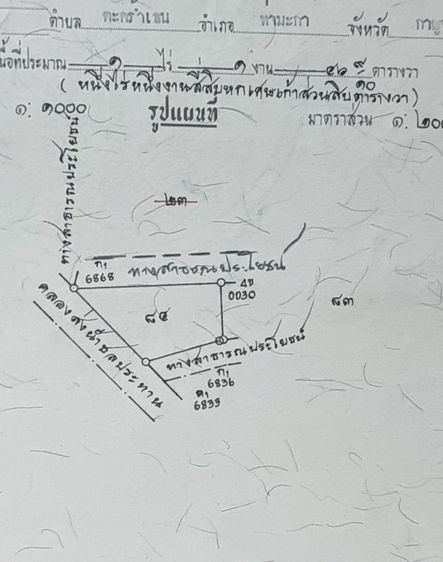 ตำบล ตะคร้ำเอน อำเภอ ท่ามะกา จังหวัด
เนื้อที่ประมาณ ๑ ไร่ ๑ งาน ๔๖ ๙/๑๐ ตารางวา
( หนึ่งไร่หนึ่งงานสี่สิบหกเศษเก้าส่วนสิบตารางวา )
๑: ๑๐๐๐ รูปแผนที่ มาตราส่วน ๑:
ทางสาธารณประโยชน์
๒๓
ก1
6868
ทางสาธารณประโยชน์
4ข
0030
๘๔
๘๓
คลองส่งน้ำชลประทาน
ทางสาธารณประโยชน์
ก1
6836
ค1
6833